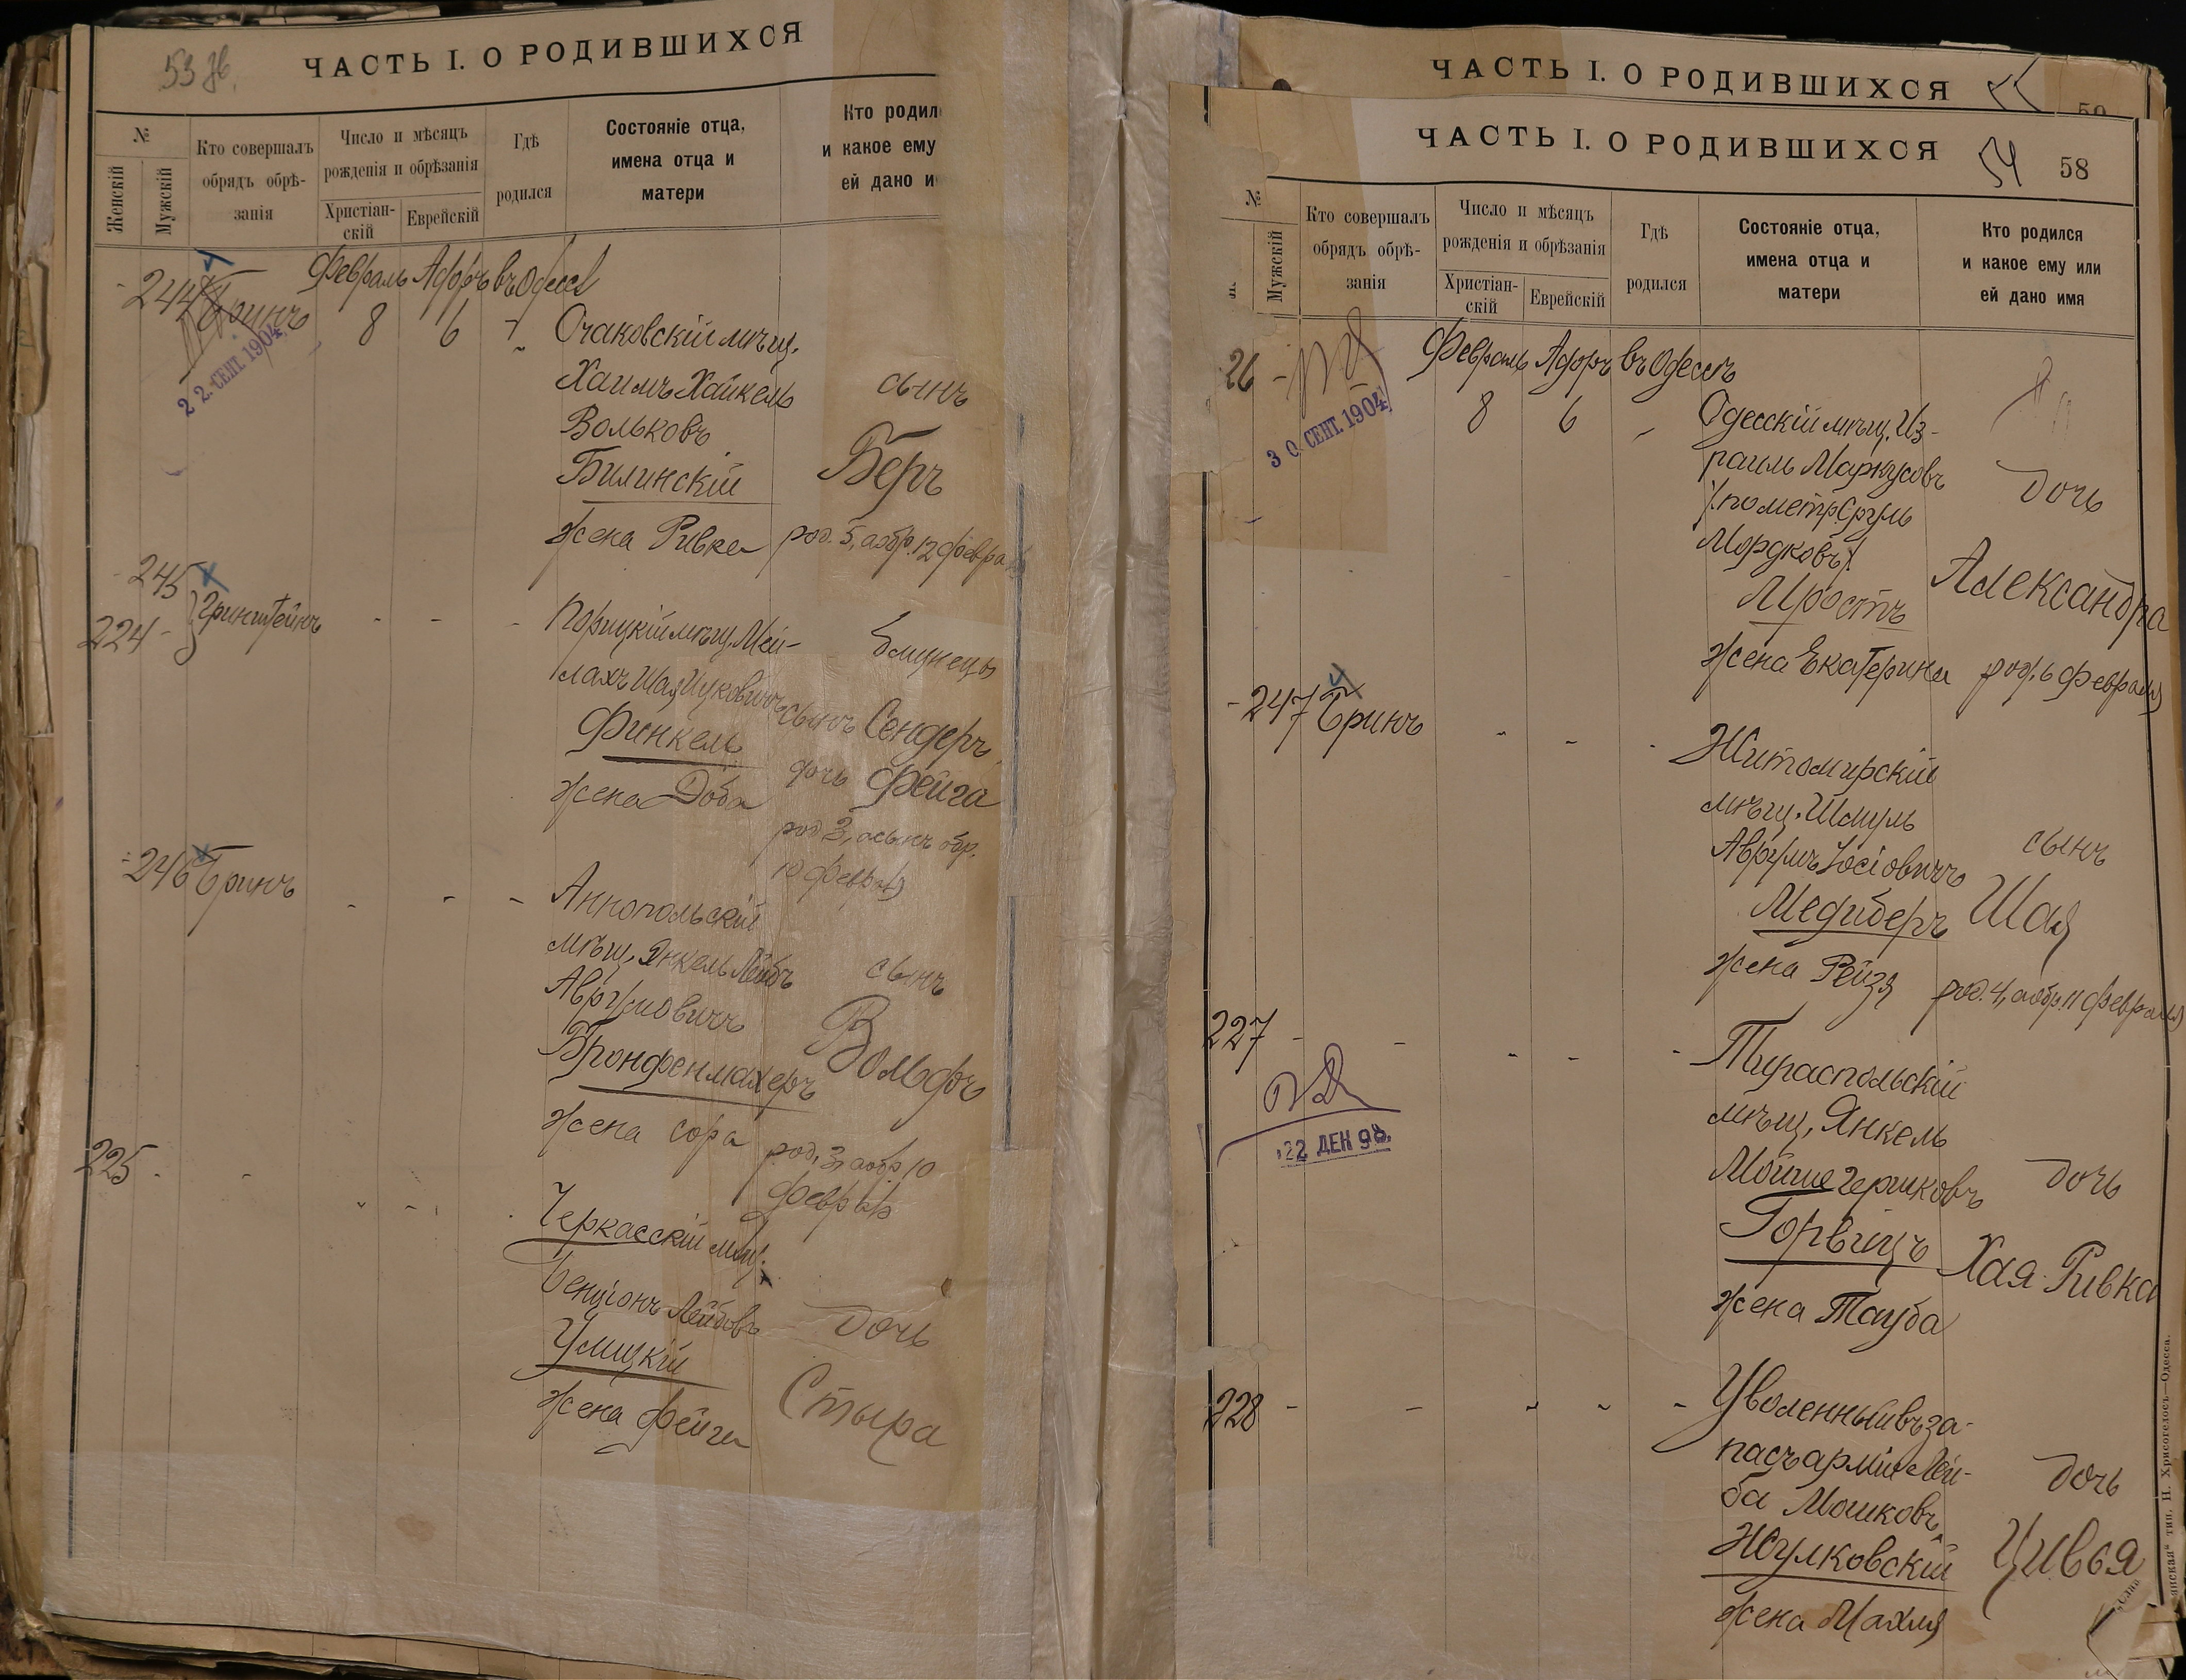 53 зв.
ЧАСТЬ I. О РОДИВШИХСЯ
№
Женскій
Мужскій
Кто совершалъ
обрядъ обрѣ-
занія
Число и мѣсяцъ
рожденія и обрѣзанія
Христіан-
скій
Еврейскій
Гдѣ
родился
Состояніе отца,
имена отца и
матери
Кто родил
и какое ему
ей дано и
Февраль Адоръ въ Одессѣ
244 Бринъ 8 6 Очаковскій мѣщ.
22 СЕНТ. 1904
Хаимъ Хайкель сынъ
Вольковъ
Билинскій Беръ
жена Ривка род. 5, а обр. 12 февраля
245
224 Гринштейнъ
Порицкій мѣщ. Мей- близнецы
лахъ Шая Ицковичъ сынъ Сендеръ,
Финкель дочь Фейга
жена Доба
род 3, а сынъ обр.
10 февраля
246 Бринъ
Аннопольскій
мѣщ. Янкель Лейбъ сынъ
Аврумовичъ Вольфъ
Бронфенмахеръ
жена Сора род. 3, а обр 10
февраля
225
Черкасскій мѣщ.
Бенціонъ Лейбовъ дочь
Улицкій
жена Фейга Стыра
ЧАСТЬ I. О РОДИВШИХСЯ 55
59
ЧАСТЬ I. О РОДИВШИХСЯ 54 58
№
Мужскій
Кто совершалъ
обрядъ обрѣ-
занія
Число и мѣсяцъ
рожденія и обрѣзанія
Христіан-
скій
Еврейскій
Гдѣ
родился
Состояніе отца,
имена отца и
матери
Кто родился
и какое ему или
ей дано имя
Февраль Адоръ въ Одессѣ
26 8 6 Одесскій мѣщ. Из-
30 СЕНТ. 1904
раиль Маркусовъ дочь
/по метр. Сруль
Мордковъ/.
Мростъ Александра
жена Екатерина род. 6 февраля
247 Бринъ
Житомирскій
мѣщ. Шмуль
Аврумъ Іосіовичъ сынъ
Медиберъ Шая
жена Рейзя род. 4, а обр. 11 февраля
227
22 ДЕК 98
Тираспольскій
мѣщ. Янкель
Мойше Гершковъ дочь
Горвицъ Хая Ривка
жена Тауба
228
Уволенный въ за-
пасъ арміи Лей- дочь
ба Мошковъ
Жулковскій Цивья
жена Махля
тип. Н. Хрисогелосъ—Одесса.